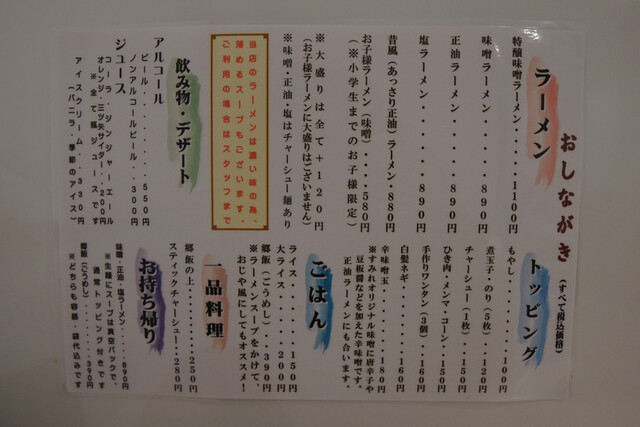 おしながき（すべて税込価格）
ラーメン
特醸味噌ラーメン・・・・1100円
味噌ラーメン・・・・890円
正油ラーメン・・・・890円
塩ラーメン・・・・・890円
昔風（あっさり正油）ラーメン・880円
お子様ラーメン（味噌）・・・・580円
（※小学生までのお子様限定）
※大盛りは全て+120円
（お子様ラーメンに大盛りはございません）
※味噌・正油・塩はチャーシュー麺あり
当店のラーメンは濃い味の為、
薄めるスープもございます。
ご利用の場合はスタッフまで
飲み物・デザート
アルコール
ビール・・・・・・・・550円
ノンアルコールビール・・300円
ジュース
コーラ・ジンジャーエール
オレンジ・三ツ矢サイダー・200円
※全て瓶ジュースです
アイスクリーム・・330円
（バニラ・季節のアイス）
トッピング
もやし・・・・・・・・100円
煮玉子・のり（5枚）・・120円
チャーシュー（1枚）・・150円
ひき肉・メンマ・コーン・150円
手作りワンタン（3個）・・160円
白髪ネギ・・・・・・・160円
辛味噌玉・・・・・・・180円
※すみれオリジナル味噌に唐辛子や
豆板醤などを加えた辛味噌です。
正油ラーメンにも合います。
ごはん
ライス・・・・・・150円
大ライス・・・・・200円
郷飯（ごうめし）・・390円
※ラーメンスープをかけて、
おじや風にしてもオススメ！
一品料理
郷飯の上・・・・・・250円
スティックチャーシュー・・280円
お持ち帰り
味噌・正油・塩ラーメン・・890円
※生麺にスープは真空パックで、
通常トッピング付きです
郷飯（ごうめし）・・・・390円
※どちらも容器・袋代込みです